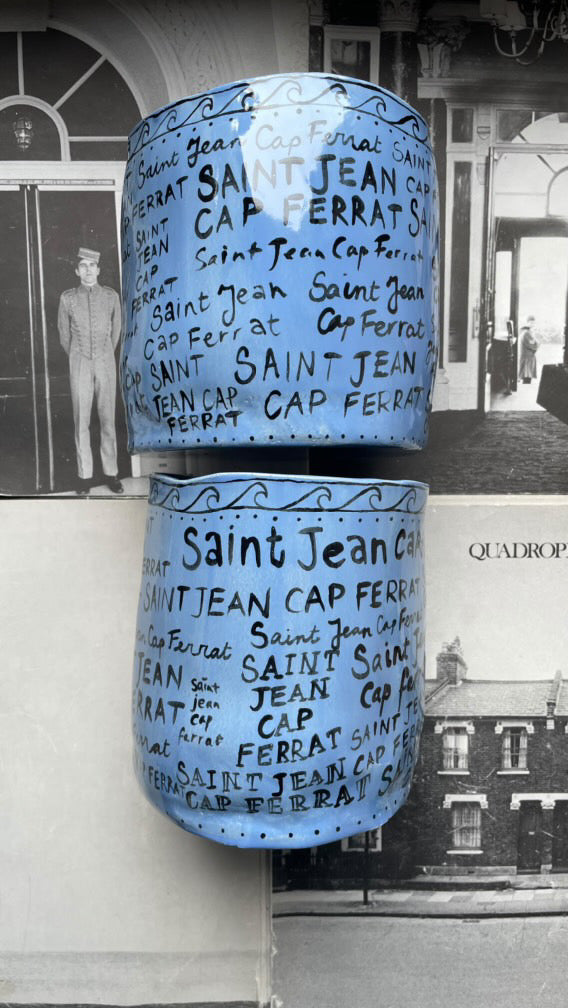 Saint Jean Cap Ferrat SAINT
FERRAT SAINT JEAN CAP
CAP FERRAT
SAINT
JEAN
CAP
FERRAT
Saint Jean Cap Ferrat
Saint Jean Saint Jean
Cap Ferrat Cap Ferrat
SAINT SAINT JEAN
JEAN CAP CAP FERRAT
FERRAT
Saint Jean Ca
FERRAT
SAINT JEAN CAP FERRAT
Cap Ferrat Saint Jean Cap
JEAN SAINT Saint
Saint
jean
cap
ferrat
JEAN Cap
CAP
FERRAT SAINT
SAINT JEAN CAP
FERRAT CAP FERRAT
QUADROP